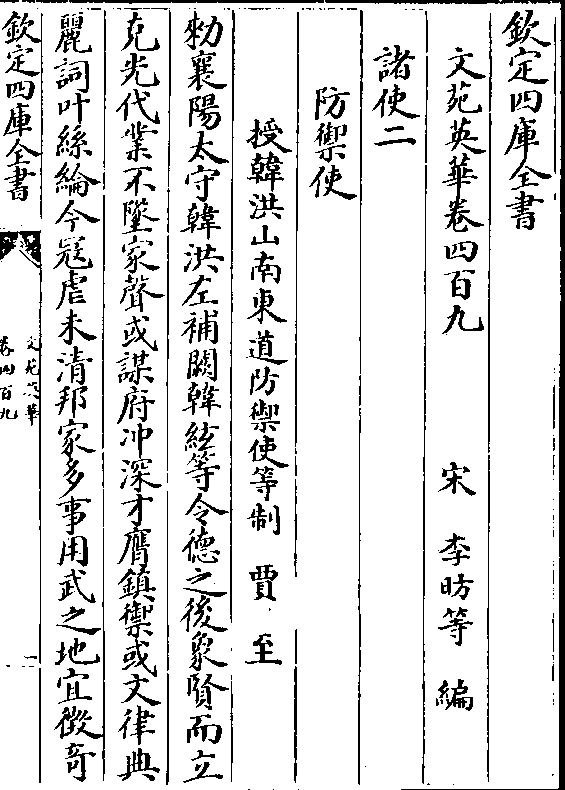 欽定四庫全書
文苑英華卷四百九
宋 李昉等 編
諸使二
防禦使
授韓洪山南東道防禦使等制 賈至
勅襄陽太守韓洪左補闕韓紘等令德之後象賢而立
克光代業不墜家聲或謀府冲深才膺鎮禦或文律典
麗詞叶絲綸今寇虐未清邦家多事用武之地宜徴竒
欽定四庫全書
文苑英華
卷四百九
一